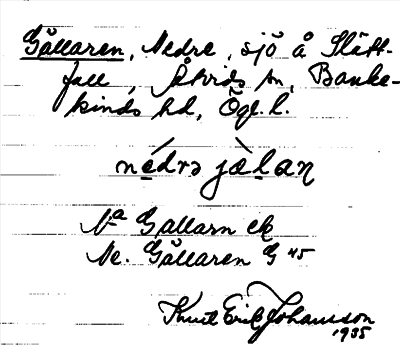 Gällaren, Nedre, sjö å Slätt-
fall, Åtvids sn, Banke-
kinds hd, Ögl. l.
nedrə jælaɳ
Na Gallarn ek
Ne. Gällaren G 45
Knut Erik Johansson
1935